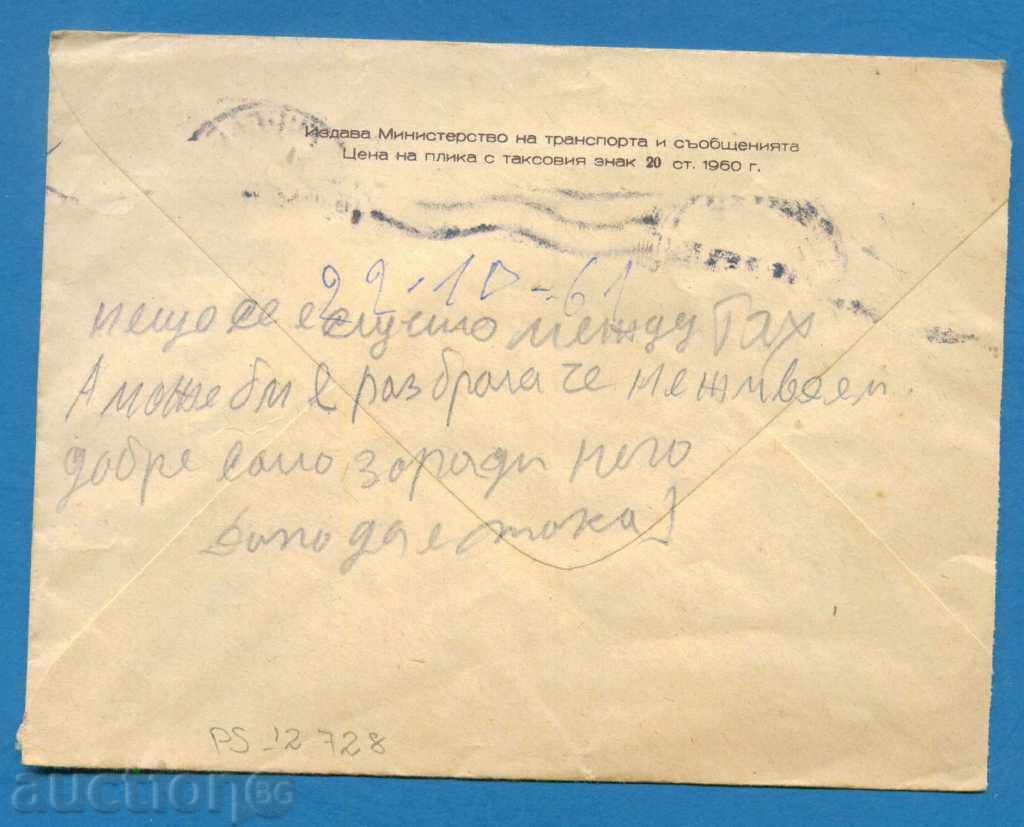 Издава Министерство на транспорта и съобщенията
Цена на плика с таксовия знак 20 ст. 1960 г.
22.10-61
нещо се е случило между Тях
А може би е разбрала че не живеем
добре само заради него
дано да е така!
PS 12 728
auction BG